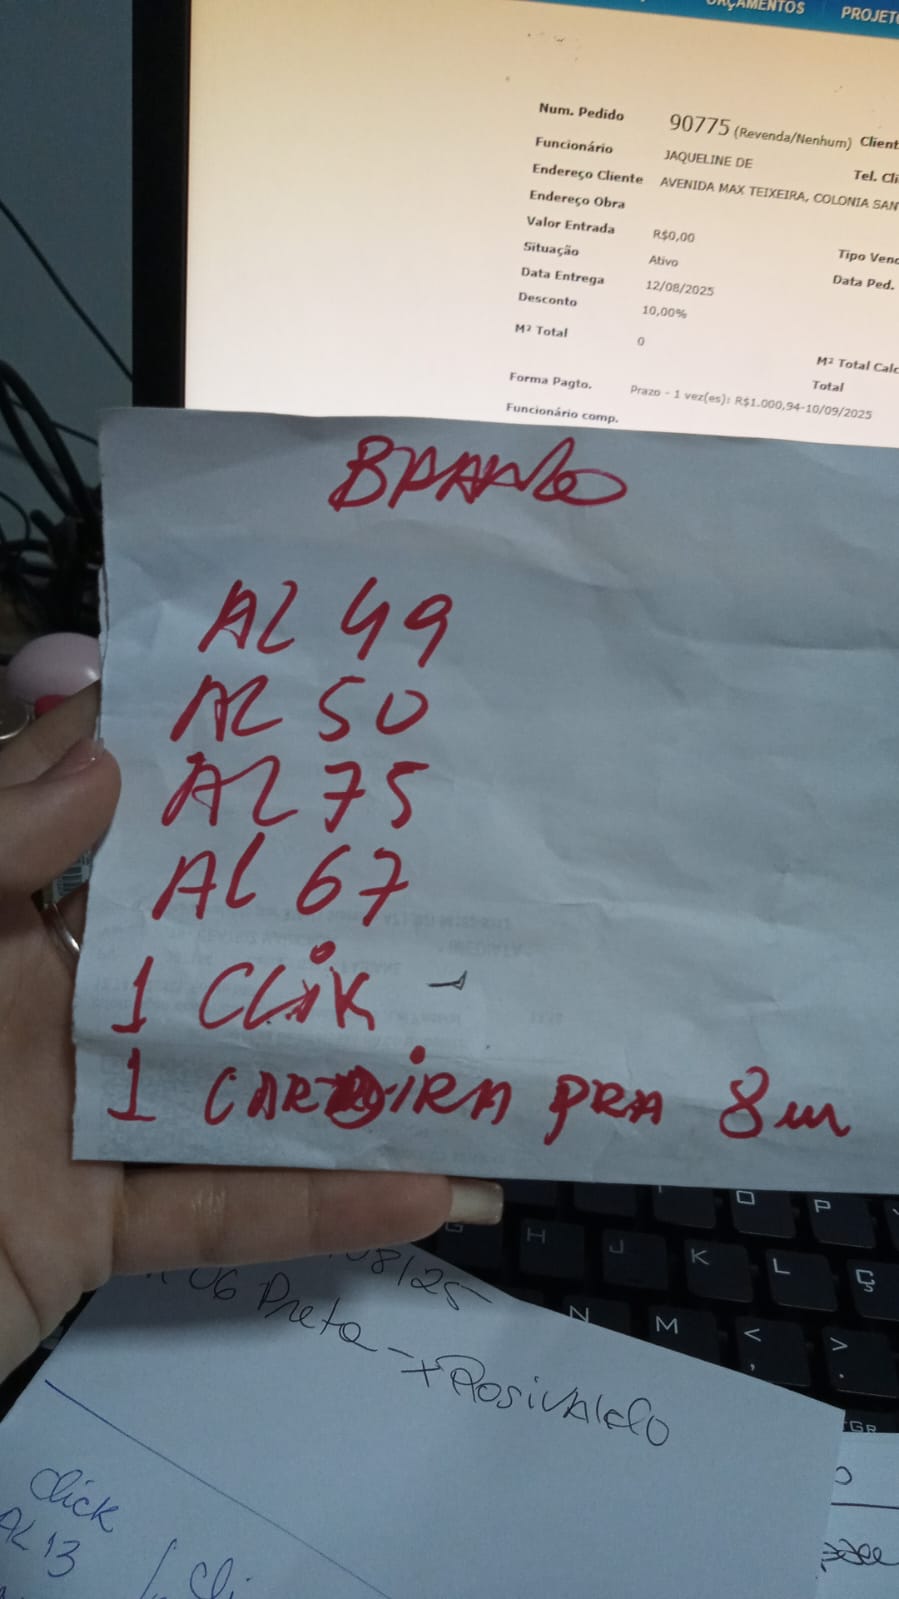 ORÇAMENTOS PROJET
Num. Pedido 90775 (Revenda/Nenhum) Client
Funcionário JAQUELINE DE Tel. Cli
Endereço Cliente AVENIDA MAX TEIXEIRA, COLONIA SAN
Endereço Obra
Valor Entrada R$0,00 Tipo Vend
Situação Ativo Data Ped.
Data Entrega 12/08/2025
Desconto 10,00%
M² Total 0 M² Total Calc
Total
Forma Pagto. Prazo - 1 vez(es): R$1.000,94-10/09/2025
Funcionário comp.
BRANCO
AL 49
AL 50
AL 75
AL 67
1 CLiK
1 CAR iRA PRA 8m
G H J K L Ç
O P
N M < , > .
08/25
06 Preta -> Rosivaldo
Click
AL 13
1 Cli
GR